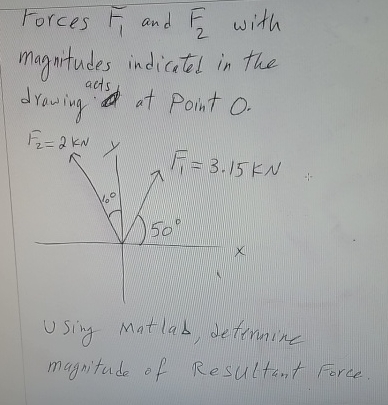 Forces F₁ and F₂ with
magnitudes indicated in the
acts
drawing at Point O.
F₂ = 2 kN
y
F₁ = 3.15 KN
10°
50°
x
Using Matlab, determine
magnitude of Resultant Force.